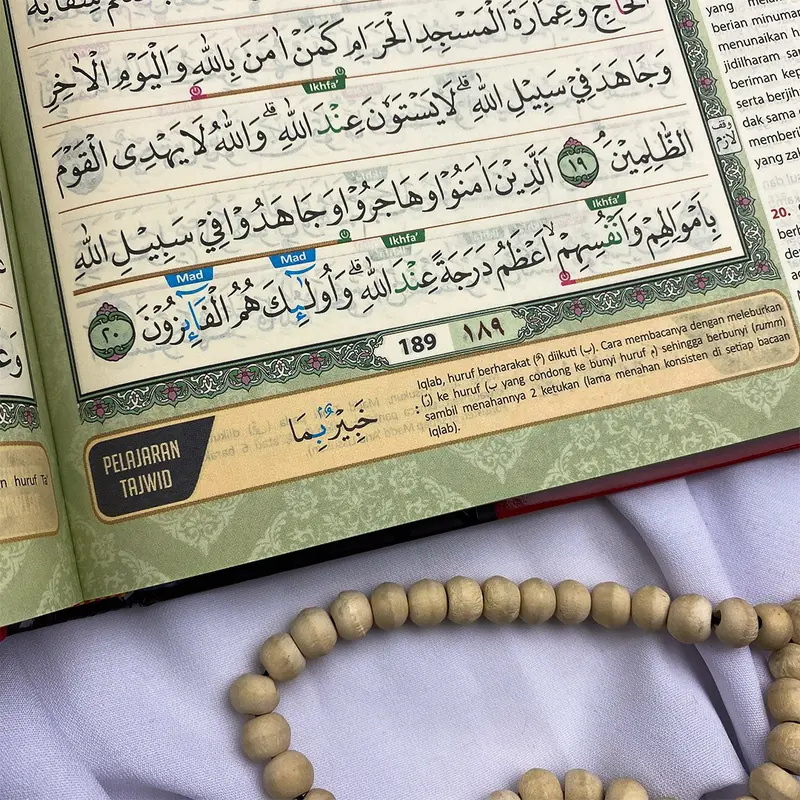 الْحَاجِّ وَعِمَارَةَ الْمَسْجِدِ الْحَرَامِ كَمَنْ اٰمَنَ بِاللّٰهِ وَالْيَوْمِ الْاٰخِرِ
Ikhfa'
وَجَاهَدَ فِيْ سَبِيْلِ اللّٰهِ ۗ لَا يَسْتَوٗنَ عِنْدَ اللّٰهِ ۗ وَاللّٰهُ لَا يَهْدِى الْقَوْمَ
الظّٰلِمِيْنَ ۘ ١٩ اَلَّذِيْنَ اٰمَنُوْا وَهَاجَرُوْا وَجَاهَدُوْا فِيْ سَبِيْلِ اللّٰهِ
Ikhfa' Ikhfa' Mad Mad
بِاَمْوَالِهِمْ وَاَنْفُسِهِمْۙ اَعْظَمُ دَرَجَةً عِنْدَ اللّٰهِ ۗ وَاُولٰۤىِٕكَ هُمُ الْفَاۤىِٕزُوْنَ ٢٠
وقف لازم
189 ١٨٩
PELAJARAN
TAJWID
خَبِيْرٌۢ بِمَا
:
Iqlab, huruf berharakat (ـٌ) diikuti (ب). Cara membacanya dengan meleburkan
(نْ) ke huruf (ب) yang condong ke bunyi huruf م) sehingga berbunyi (rumm)
sambil menahannya 2 ketukan (lama menahan konsisten di setiap bacaan
Iqlab).
yang
berian minuman
menunaikan h
jidilharam sa
beriman kep
serta berjih
dak sama
memberi
yang zal
20.
berh
de
n huruf Ta'